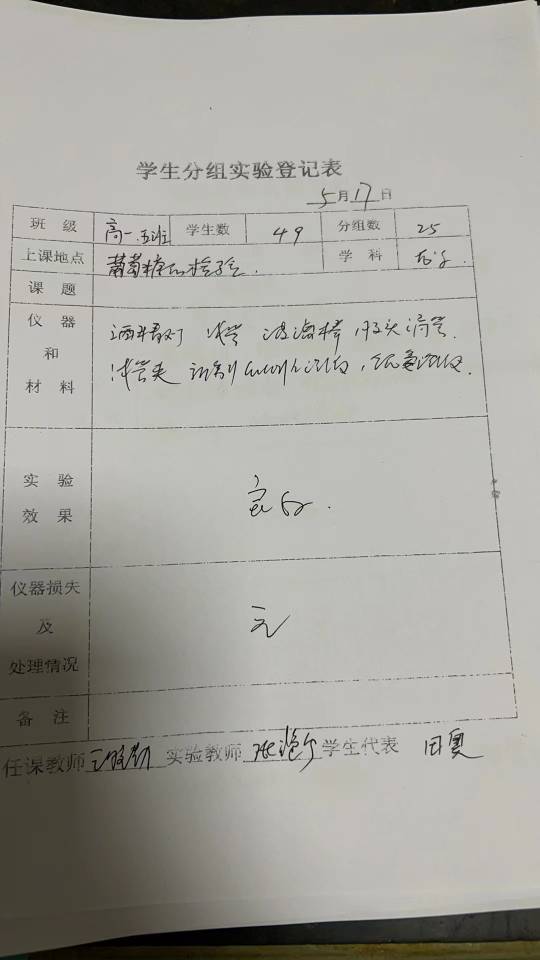 学生分组实验登记表
5月17日
班 级 高一.五班 学生数 49 分组数 25
上课地点 葡萄糖的检验. 学 科 化学.
课 题
仪 器 酒精灯 试管 玻璃棒 胶头滴管
和
材 料 试管夹 新制
实 验
效 果 良好.
仪器损失
及 无
处理情况
备 注
任课教师 实验教师 学生代表 田奥